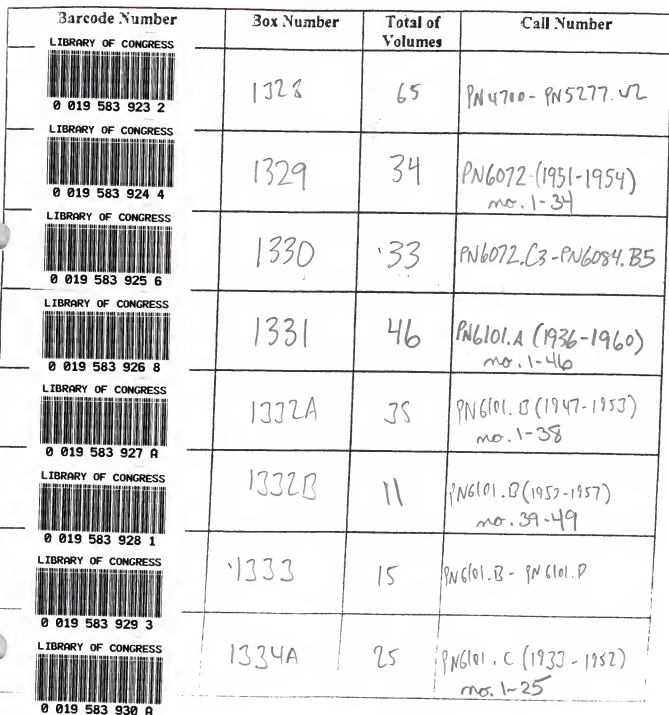 Barcode Number Box Number Total of Volumes Call Number
LIBRARY OF CONGRESS
0 019 583 923 2
1328 65 PN4700-PN5277.V2
LIBRARY OF CONGRESS
0 019 583 924 4
1329 34 PN6072 (1951-1954)
no. 1-34
LIBRARY OF CONGRESS
0 019 583 925 6
1330 33 PN6072.C3-PN6084.B5
LIBRARY OF CONGRESS
0 019 583 926 8
1331 46 PN6101.A (1936-1960)
no. 1-46
LIBRARY OF CONGRESS
0 019 583 927 A
1332A 38 PN6101.B (1947-1953)
no. 1-38
LIBRARY OF CONGRESS
0 019 583 928 1
1332B 11 PN6101.B (1953-1957)
no. 39-49
LIBRARY OF CONGRESS
0 019 583 929 3
1333 15 PN6101.B - PN6101.D
LIBRARY OF CONGRESS
0 019 583 930 A
1334A 25 PN6101.C (1933-1952)
no. 1-25